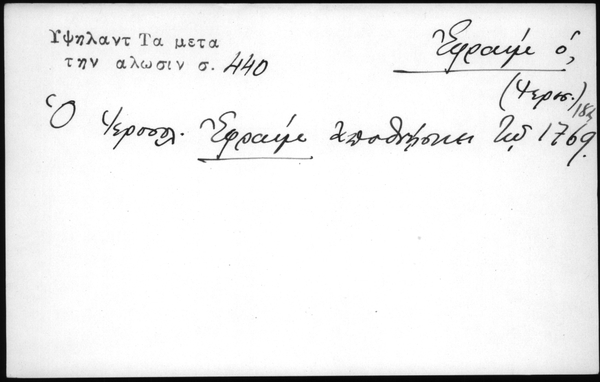 Υψηλαντ Τα μετα
την αλωσιν σ. 440
Ἐφραὶμ ὁ,
(Ἱεροσ.)
Ὁ Ἱεροσολ. Ἐφραὶμ ἀποθνήσκει τῷ 1769.